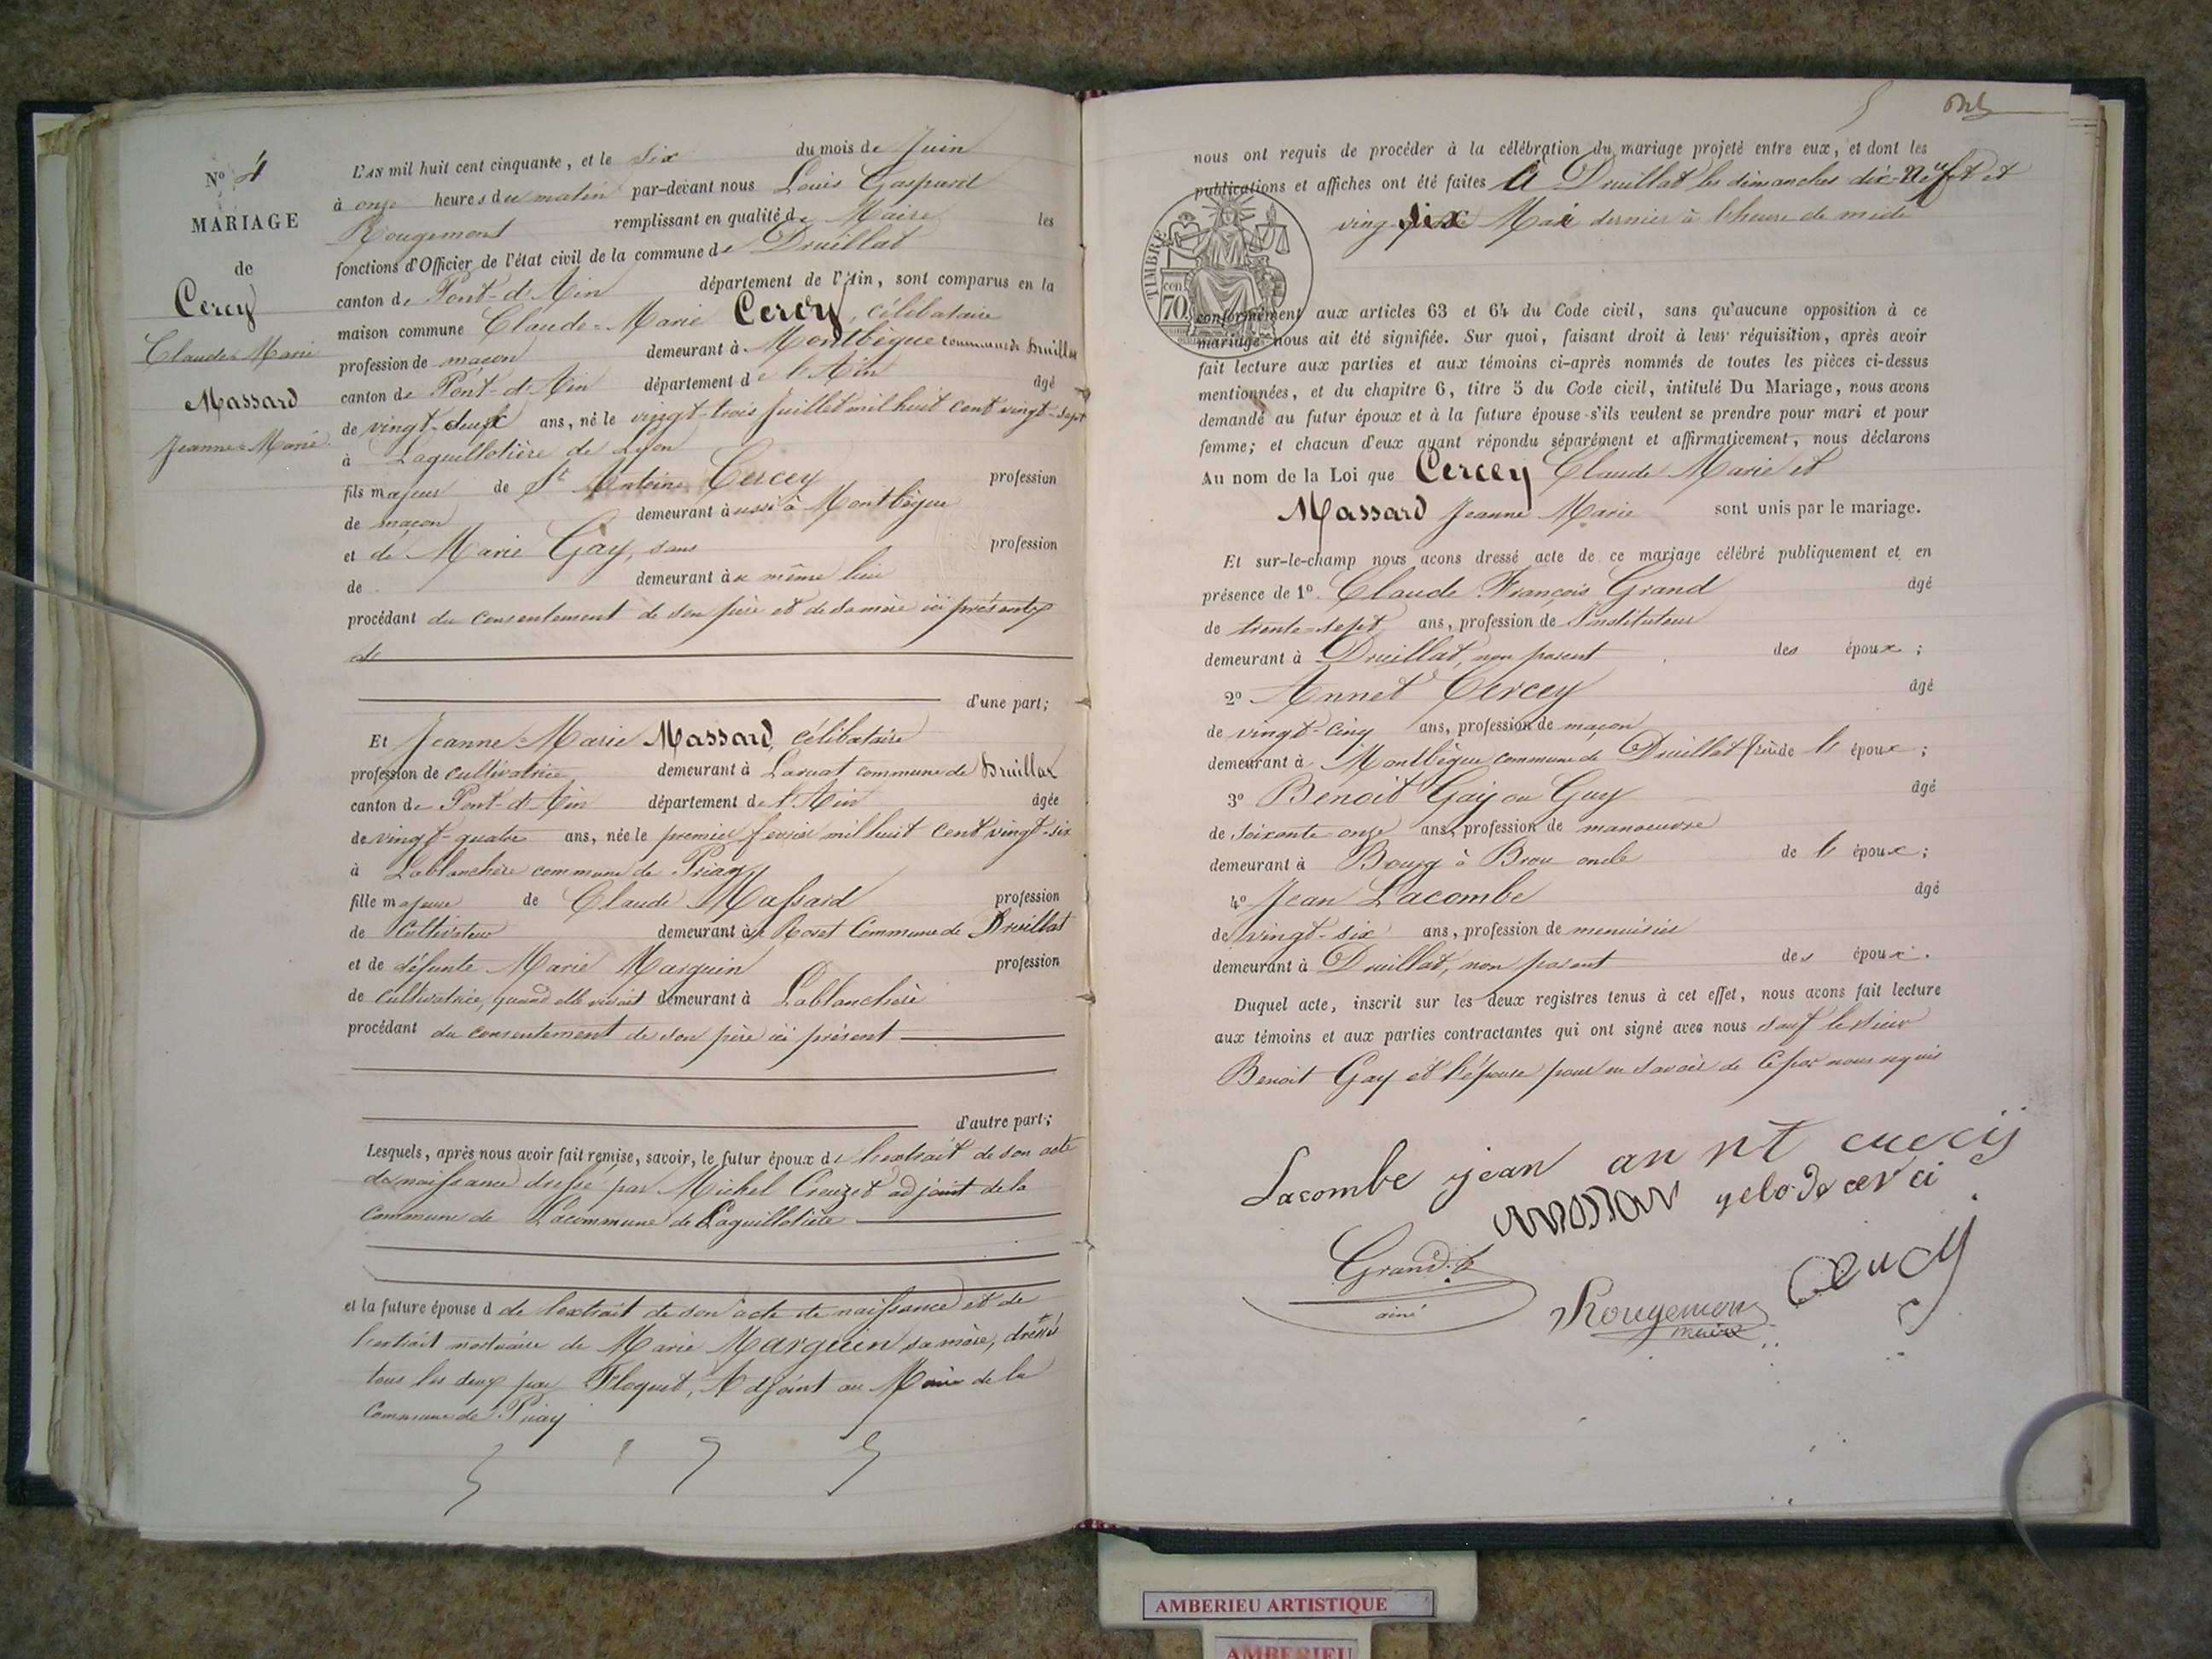 N° 4
MARIAGE
de
Cercy
Claude-Marie
Massard
Jeanne-Marie
L'AN mil huit cent cinquante, et le six du mois de Juin
à onze heures du matin par-devant nous Louis Gaspard
Rougemont remplissant en qualité de Maire les
fonctions d'Officier de l'état civil de la commune de Druillat
canton de Pont-d'Ain département de l'Ain, sont comparus en la
maison commune Claude-Marie Cercy, célibataire
profession de maçon demeurant à Montbègue commune de Druillat
canton de Pont-d'Ain département de l'Ain âgé
de vingt-deux ans, né le vingt-trois Juillet mil huit cent vingt-sept
à Laguillotière de Lyon
fils majeur de St Antoine Cercey profession
de maçon demeurant aussi à Montbègue
et de Marie Gay, sans profession
de demeurant au même lieu
procédant du consentement de son père et de sa mère ici présents
de
d'une part;
Et Jeanne-Marie Massard, célibataire
profession de cultivatrice, demeurant à commune de Druillat
canton de Pont-d'Ain département de l'Ain âgée
de vingt-quatre ans, née le premier février mil huit cent vingt-six
à Lablanchère commune de Priay
fille majeure de Claude Massard profession
de Cultivateur demeurant à Rozet Commune de Druillat
et de défunte Marie Marguin profession
de Cultivatrice, quand elle vivait demeurant à Lablanchère
procédant du consentement de son père ici présent
d'autre part;
Lesquels, après nous avoir fait remise, savoir, le futur époux de l'extrait de son acte
de naissance dressé par Michel Creuzet adjoint de la
commune de Lacommune de Laguillotière
et la future épouse d de l'extrait de son acte de naissance et de
l'extrait mortuaire de Marie Marguin sa mère, dressés
tous les deux par Floquet, Adjoint au Maire de la
Commune de Priay
nous ont requis de procéder à la célébration du mariage projeté entre eux, et dont les
publications et affiches ont été faites A Druillat les dimanches dix-neuf et
vingt-six Mai dernier à l'heure de midi
TIMBRE
70 cen
conformément aux articles 63 et 64 du Code civil, sans qu'aucune opposition à ce
mariage nous ait été signifiée. Sur quoi, faisant droit à leur réquisition, après avoir
fait lecture aux parties et aux témoins ci-après nommés de toutes les pièces ci-dessus
mentionnées, et du chapitre 6, titre 5 du Code civil, intitulé Du Mariage, nous avons
demandé au futur époux et à la future épouse s'ils veulent se prendre pour mari et pour
femme; et chacun d'eux ayant répondu séparément et affirmativement, nous déclarons
Au nom de la Loi que Cercey Claude Marie et
Massard Jeanne Marie sont unis par le mariage.
Et sur-le-champ nous avons dressé acte de ce mariage célébré publiquement et en
présence de 1° Claude François Grand âgé
de trente-sept ans, profession de Instituteur
demeurant à Druillat, non parent des époux;
2° Annet Cercey âgé
de vingt-cinq ans, profession de maçon
demeurant à Montbègue commune de Druillat frère de l'époux;
3° Benoit Gay ou Guy âgé
de soixante-onze ans, profession de manoeuvre
demeurant à Bourg à Brou oncle de l'époux;
4° Jean Lacombe âgé
de vingt-six ans, profession de menuisier
demeurant à Druillat, non parent des époux.
Duquel acte, inscrit sur les deux registres tenus à cet effet, nous avons fait lecture
aux témoins et aux parties contractantes qui ont signé avec nous sauf le sieur
Benoit Gay et l'épouse pour ne savoir de ce par nous requis
Lacombe jean
Grand
ainé
Rougemont
maire
AMBERIEU ARTISTIQUE
AMBERIEU